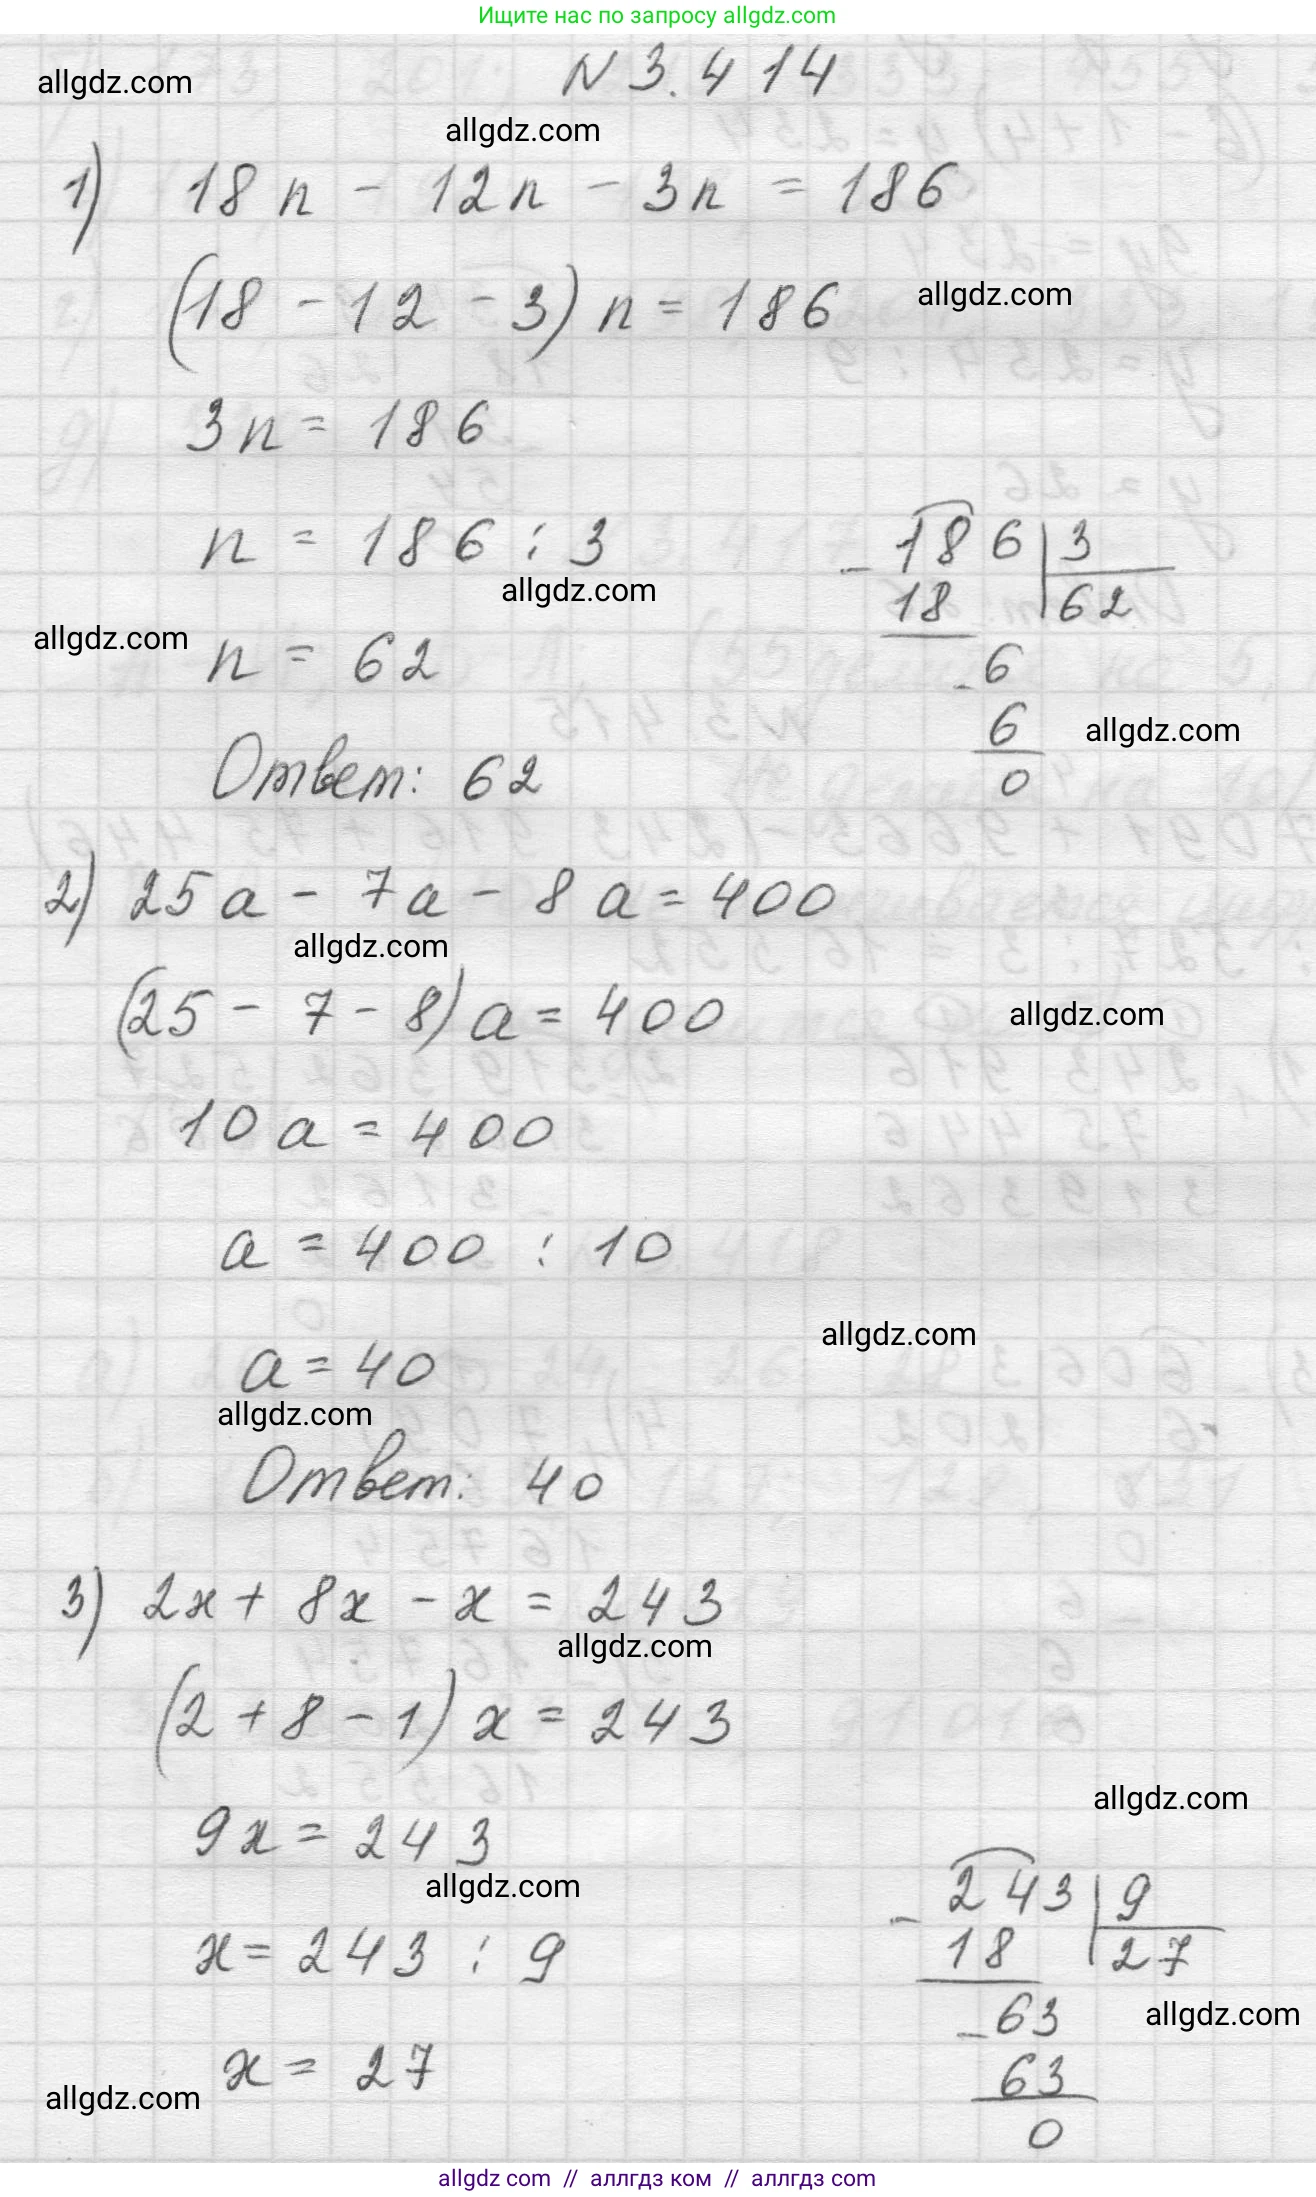 Ищите нас по запросу allgdz.com
N 3.414
allgdz.com
allgdz.com
1) 18n - 12n - 3n = 186
(18 - 12 - 3) n = 186
allgdz.com
3n = 186
n = 186 : 3
allgdz.com
allgdz.com
n = 62
Ответ: 62
- 186 | 3
18 | 62
- 6
6
0
allgdz.com
2) 25a - 7a - 8a = 400
allgdz.com
(25 - 7 - 8) a = 400
allgdz.com
10a = 400
a = 400 : 10
allgdz.com
a = 40
allgdz.com
Ответ: 40
3) 2x + 8x - x = 243
allgdz.com
(2 + 8 - 1) x = 243
allgdz.com
9x = 243
allgdz.com
x = 243 : 9
x = 27
allgdz.com
- 243 | 9
18 | 27
- 63
63
0
allgdz.com
allgdz.com // аллгдз ком // аллгдз com